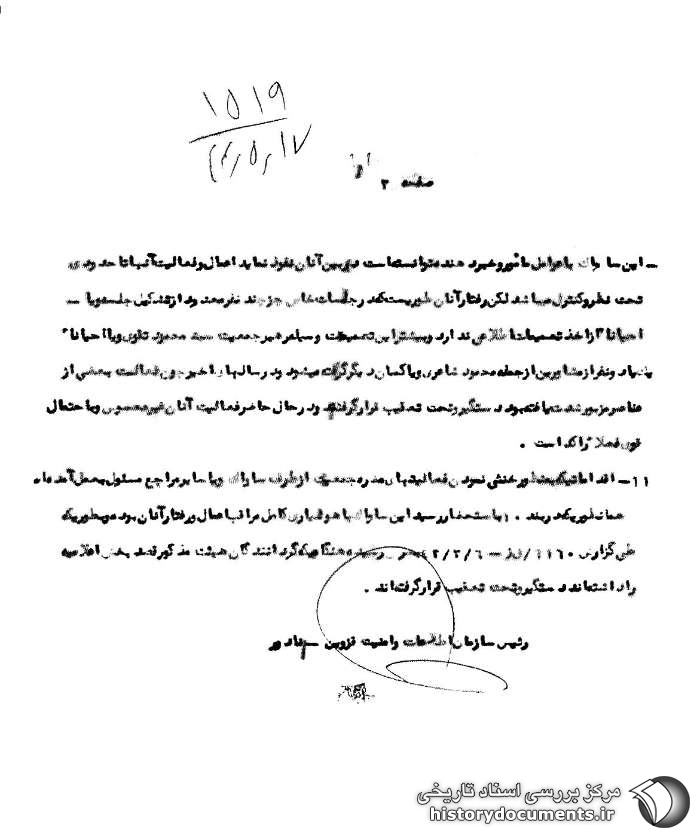 ۱۵۱۹
۴۴/۵/۱۷
صفحه ۲
ـ این ساواك با عوامل مأمور و خبردهنده توانسته است در بین آنان نفوذ نماید اعمال و فعالیت آنها تا حدودی
تحت نظر و کنترل میباشد لکن رفتار آنان طوریست که در جلسات خاص جز چند نفر معدود از تشکیل جلسه و یا ـ
احیانا" از اخذ تصمیمات اطلاعی ندارد و بیشتر این تصمیمات وسیله رهبر جمعیت سید محمود تقوی و یا احیانا"
دو نفر از مشاورین از جمله محمود شاعری و یا کسان دیگر گرفته میشود و در سالهای اخیر چون فعالیت بعضی از
عناصر مزبور شدت یافته بود دستگیر و تحت تعقیب قرار گرفتند و در حال حاضر فعالیت آنان غیرمحسوس و با احتمال
قوی فعلا" راکد است .
۱۱ـ اقداماتیکه بمنظور خنثی نمودن فعالیتهای مضره جمعیت از طرف ساواك و یا سایر مراجع مسئول بعمل آمده .
همان طوریکه در بند ۱۰ باستحضار رسید این ساواك با هوشیاری کامل مراقب اعمال و رفتار آنان بوده بطوریکه
طی گزارش هنگامیکه گردانندگان هیئت مذکور قصد پخش اعلامیه
را داشته‌اند دستگیر و تحت تعقیب قرار گرفته‌اند .
رئیس سازمان اطلاعات و امنیت قزوین
مرکز بررسی اسناد تاریخی
historydocuments.ir